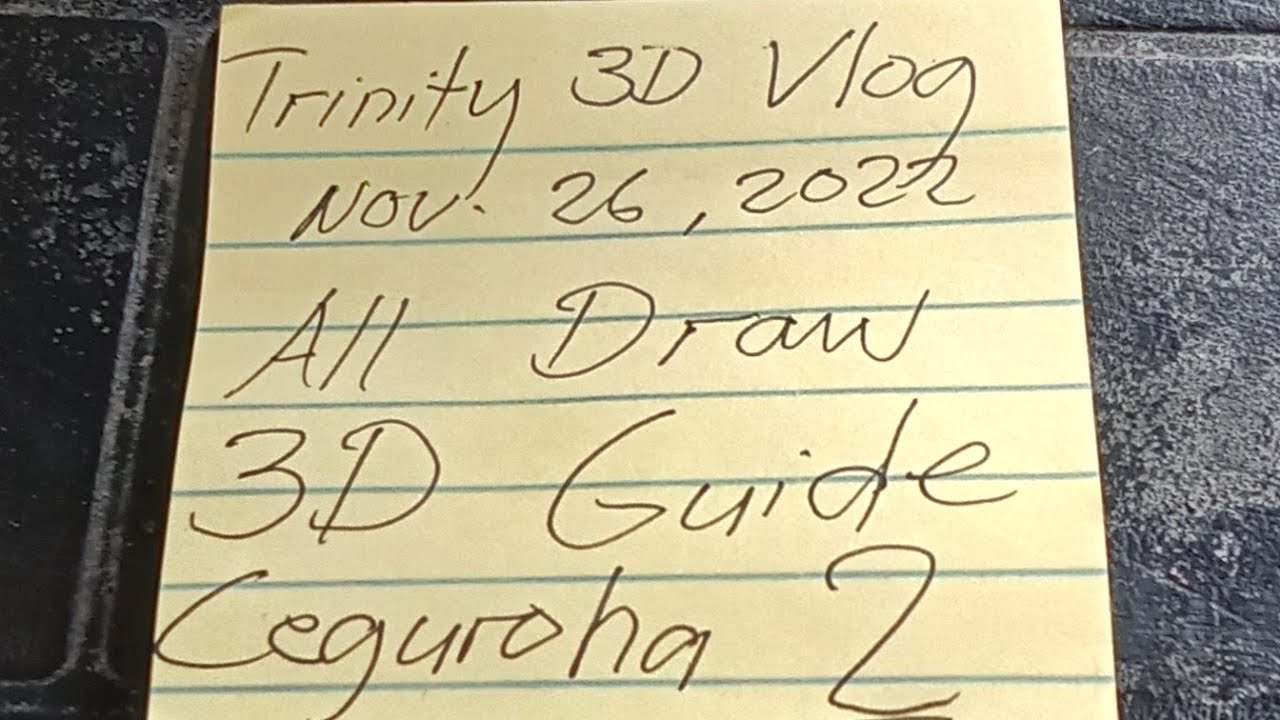 Trinity 3D Vlog
Nov. 26, 2022
All Draw
3D Guide
Ceguroha 2